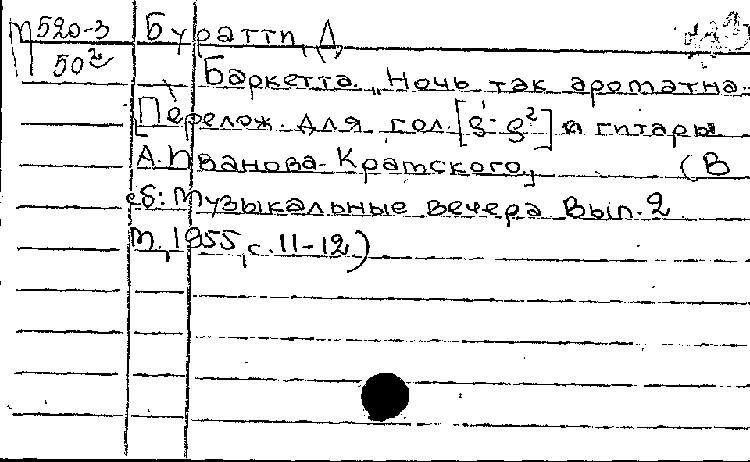 П 520-3 Буратти, Д
50² Баркетта. „Ночь так ароматна.
[Перелож. для гол. [g¹-g²] и гитары
А. Иванова-Крамского, (В
сб: Музыкальные вечера Вып. 2
М., 1955, с. 11-12)